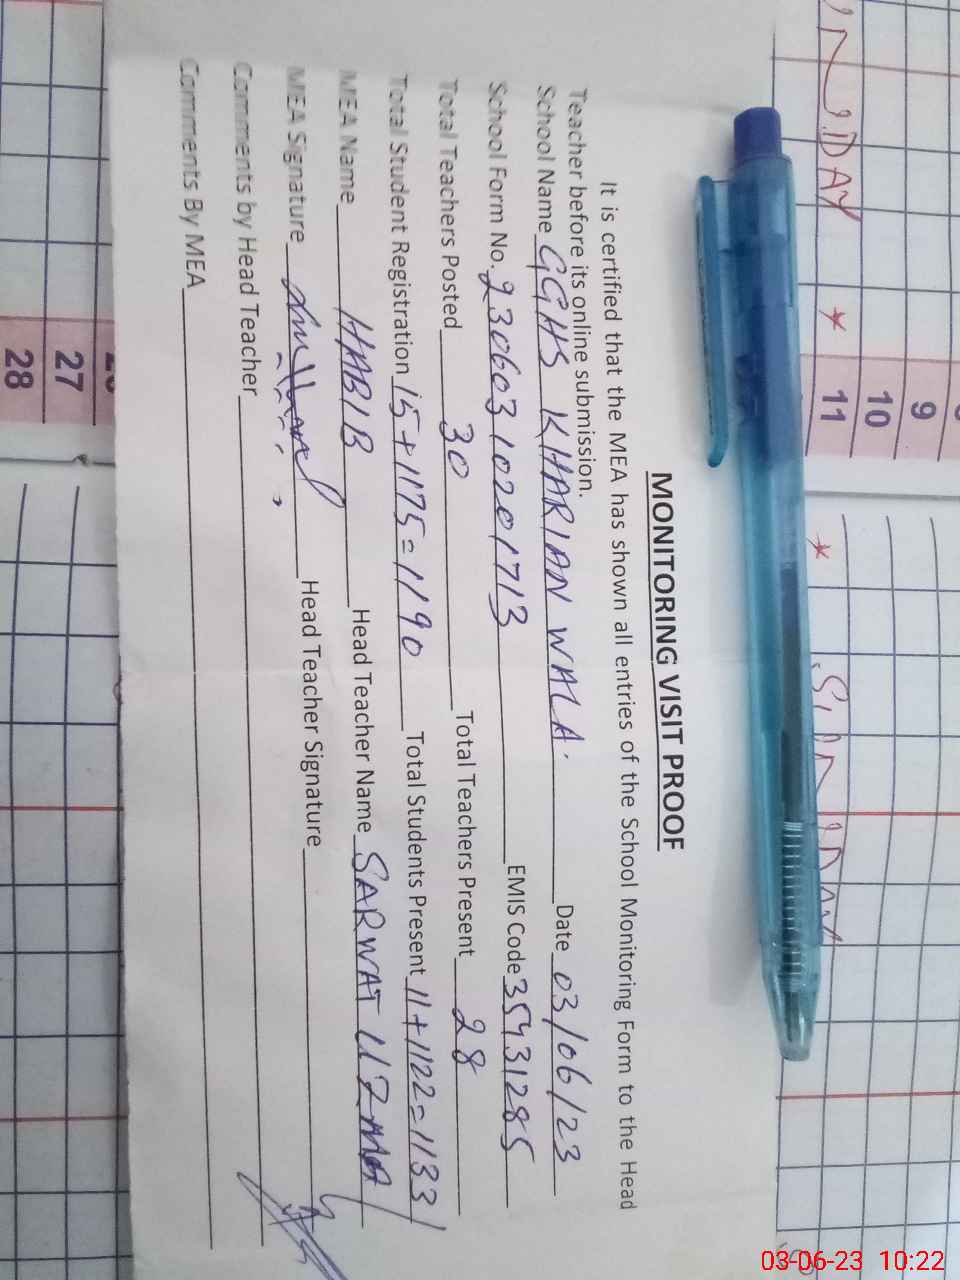 MONITORING VISIT PROOF
It is certified that the MEA has shown all entries of the School Monitoring Form to the Head
Teacher before its online submission.
School Name GGHS KHARIAN WALA. Date 03/06/23
School Form No. 23060310201713 EMIS Code 35431285
Total Teachers Posted 30 Total Teachers Present 28
Total Student Registration 15+1175=1190 Total Students Present 11+1122=1133
MEA Name HABIB Head Teacher Name SARWAT UZMA
MEA Signature Head Teacher Signature
Comments by Head Teacher
Comments By MEA
9
10
11
27
28
03-06-23 10:22